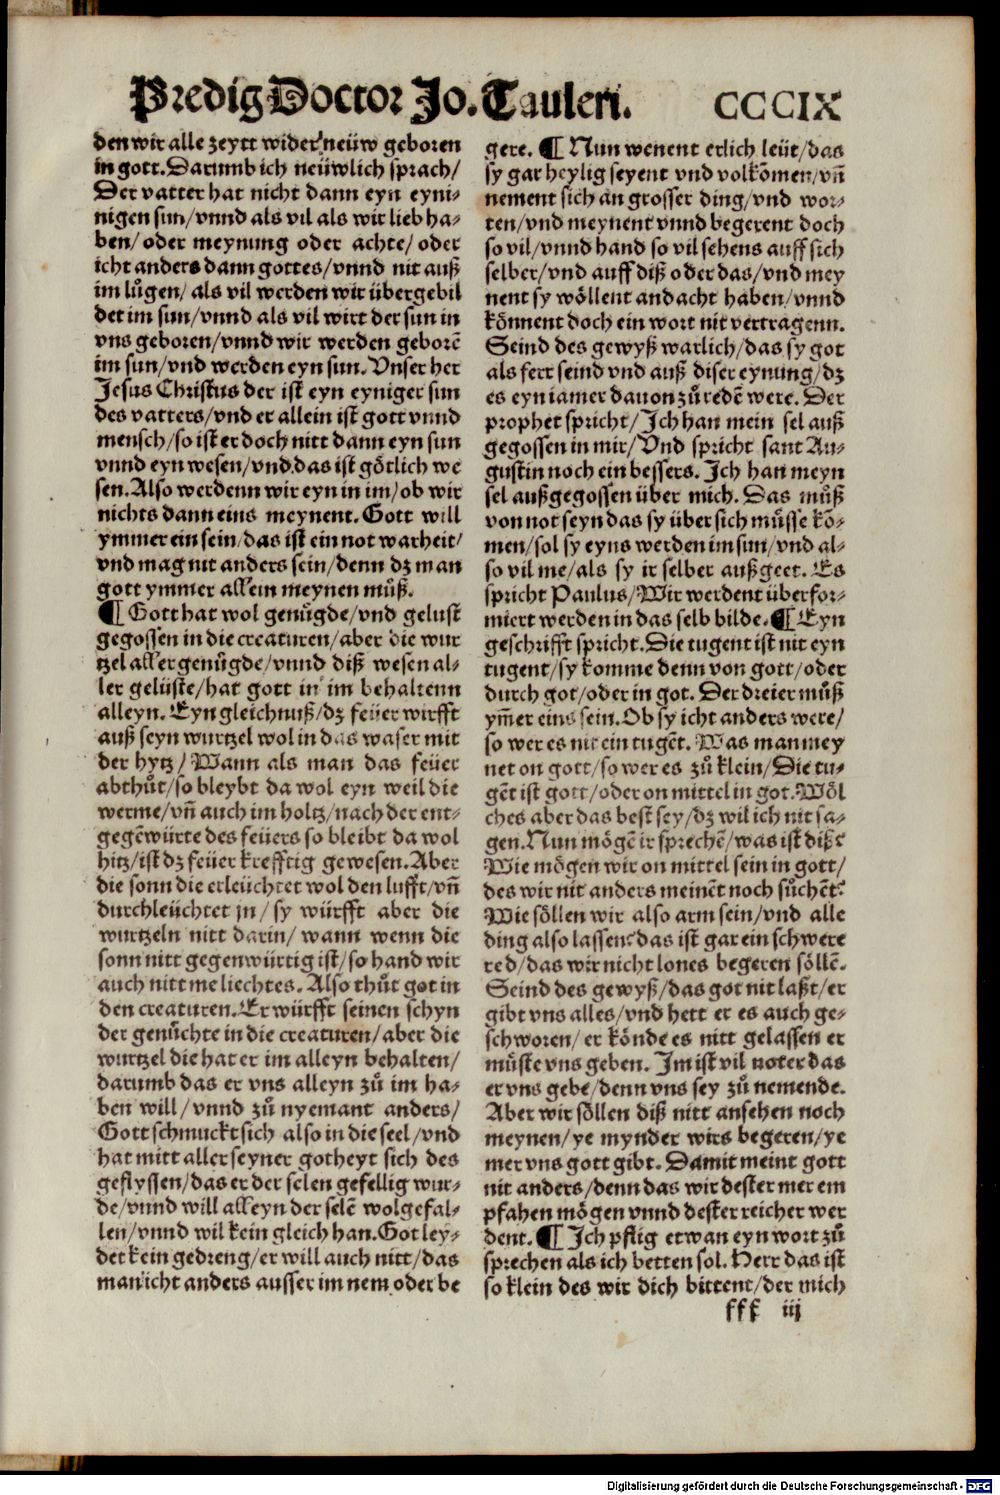 Predig Doctor Jo. Tauleri. CCCIX
den wir alle zeytt wider neüw geboren
in gott. Darumb ich neüwlich sprach/
Der vatter hat nicht dann eyn eyni-
nigen sun/vnnd als vil als wir lieb ha-
ben/oder meynung oder achte/oder
icht anders dann gottes/vnnd nit auß
im lůgen/als vil werden wir übergebil
det im sun/vnnd als vil wirt der sun in
vns geboren/vnnd wir werden geborẽ
im sun/vnd werden eyn sun. Vnser her
Jesus Christus der ist eyn eyniger sun
des vatters/vnd er allein ist gott vnnd
mensch/so ist er doch nitt dann eyn sun
vnnd eyn wesen/vnd das ist götlich we
sen. Also werdenn wir eyn in im/ob wir
nichts dann eins meynent. Gott will
ymmer ein sein/das ist ein not warheit/
vnd mag nit anders sein/denn dz man
gott ymmer allein meynen můß.
¶ Gott hat wol genůgde/vnd gelust
gegossen in die creaturen/aber die wur
tzel aller genůgde/vnnd diß wesen al-
ler gelüste/hat gott in im behaltenn
alleyn. Eyn gleichnuß/dz feüer wirfft
auß seyn wurtzel wol in das waser mit
der hytz/Wann als man das feüer
abthůt/so bleybt da wol eyn weil die
werme/vñ auch im holtz/nach der ent-
gegẽwürte des feüers so bleibt da wol
hitz/ist dz feüer krefftig gewesen. Aber
die sonn die erleüchtet wol den lufft/vñ
durchleüchtet jn/sy würfft aber die
wurtzeln nitt darin/wann wenn die
sonn nitt gegenwürtig ist/so hand wir
auch nitt me liechtes. Also thůt got in
den creaturen. Er würfft seinen schyn
der genůchte in die creaturen/aber die
wurtzel die hat er im alleyn behalten/
darumb das er vns alleyn zů im ha-
ben will/vnnd zů nyemant anders/
Gott schmuckt sich also in die seel/vnd
hat mitt aller seyner gotheyt sich des
geflyssen/das er der selen gefellig wur-
de/vnnd will alleyn der selẽ wolgefal-
len/vnnd wil kein gleich han. Got ley-
det kein gedreng/er will auch nitt/das
man icht anders ausser im nem oder be
gere. ¶ Nun wenent erlich leüt/das
sy gar heylig seyent vnd volkõmen/vñ
nement sich an grosser ding/vnd wor-
ten/vnd meynent vnnd begerent doch
so vil/vnnd hand so vil sehens auff sich
selber/vnd auff diß oder das/vnd mey
nent sy wöllent andacht haben/vnnd
könnent doch ein wort nit vertragenn.
Seind des gewyß warlich/das sy got
als ferr seind vnd auß diser eynung/dz
es eyn iamer dauon zů redẽ were. Der
prophet spricht/Ich han mein sel auß
gegossen in mir/Vnd spricht sant Au-
gustin noch ein bessers. Ich han meyn
sel außgegossen über mich. Das můß
von not seyn das sy über sich můsse kõ-
men/sol sy eyns werden im sun/vnd al-
so vil me/als sy ir selber außgeet. Es
spricht Paulus/Wir werdent überfor-
miert werden in das selb bilde. ¶ Eyn
geschrifft spricht. Die tugent ist nit eyn
tugent/sy komme denn von gott/oder
durch got/oder in got. Der dreier můß
ym̃er eins sein. Ob sy icht anders were/
so wer es nit ein tugẽt. Was man mey
net on gott/so wer es zů klein/Die tu-
gẽt ist gott/oder on mittel in got. Wöl
ches aber das best sey/dz wil ich nit sa-
gen. Nun mögẽ ir sprechẽ/was ist diß?
Wie mögen wir on mittel sein in gott/
des wir nit anders meinẽt noch sůchẽt?
Wie söllen wir also arm sein/vnd alle
ding also lassen? das ist gar ein schwere
red/das wir nicht lones begeren söllẽ.
Seind des gewyß/das got nit laßt/er
gibt vns alles/vnd hett er es auch ge-
schworen/er könde es nitt gelassen er
můste vns geben. Im ist vil noter das
er vns gebe/denn vns sey zů nemende.
Aber wir söllen diß nitt ansehen noch
meynen/ye mynder wirs begeren/ye
mer vns gott gibt. Damit meint gott
nit anders/denn das wir dester mer em
pfahen mögen vnnd dester reicher wer
dent. ¶ Ich pflig etwan eyn wort zů
sprechen als ich betten sol. Herr das ist
so klein des wir dich bittent/der mich
fff iij
Digitalisierung gefördert durch die Deutsche Forschungsgemeinschaft - DFG